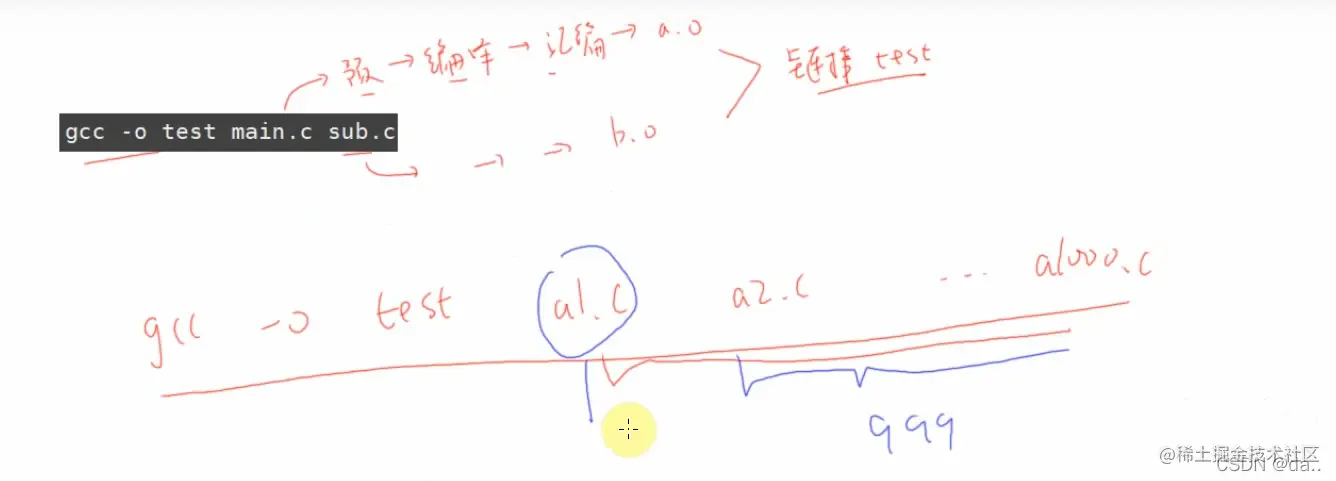 预 → 编译 → 汇编 → a.o
链接 test
gcc -o test main.c sub.c
→ → b.o
gcc -o test a1.c a2.c ... a1000.c
999
@稀土掘金技术社区
CSDN @da..